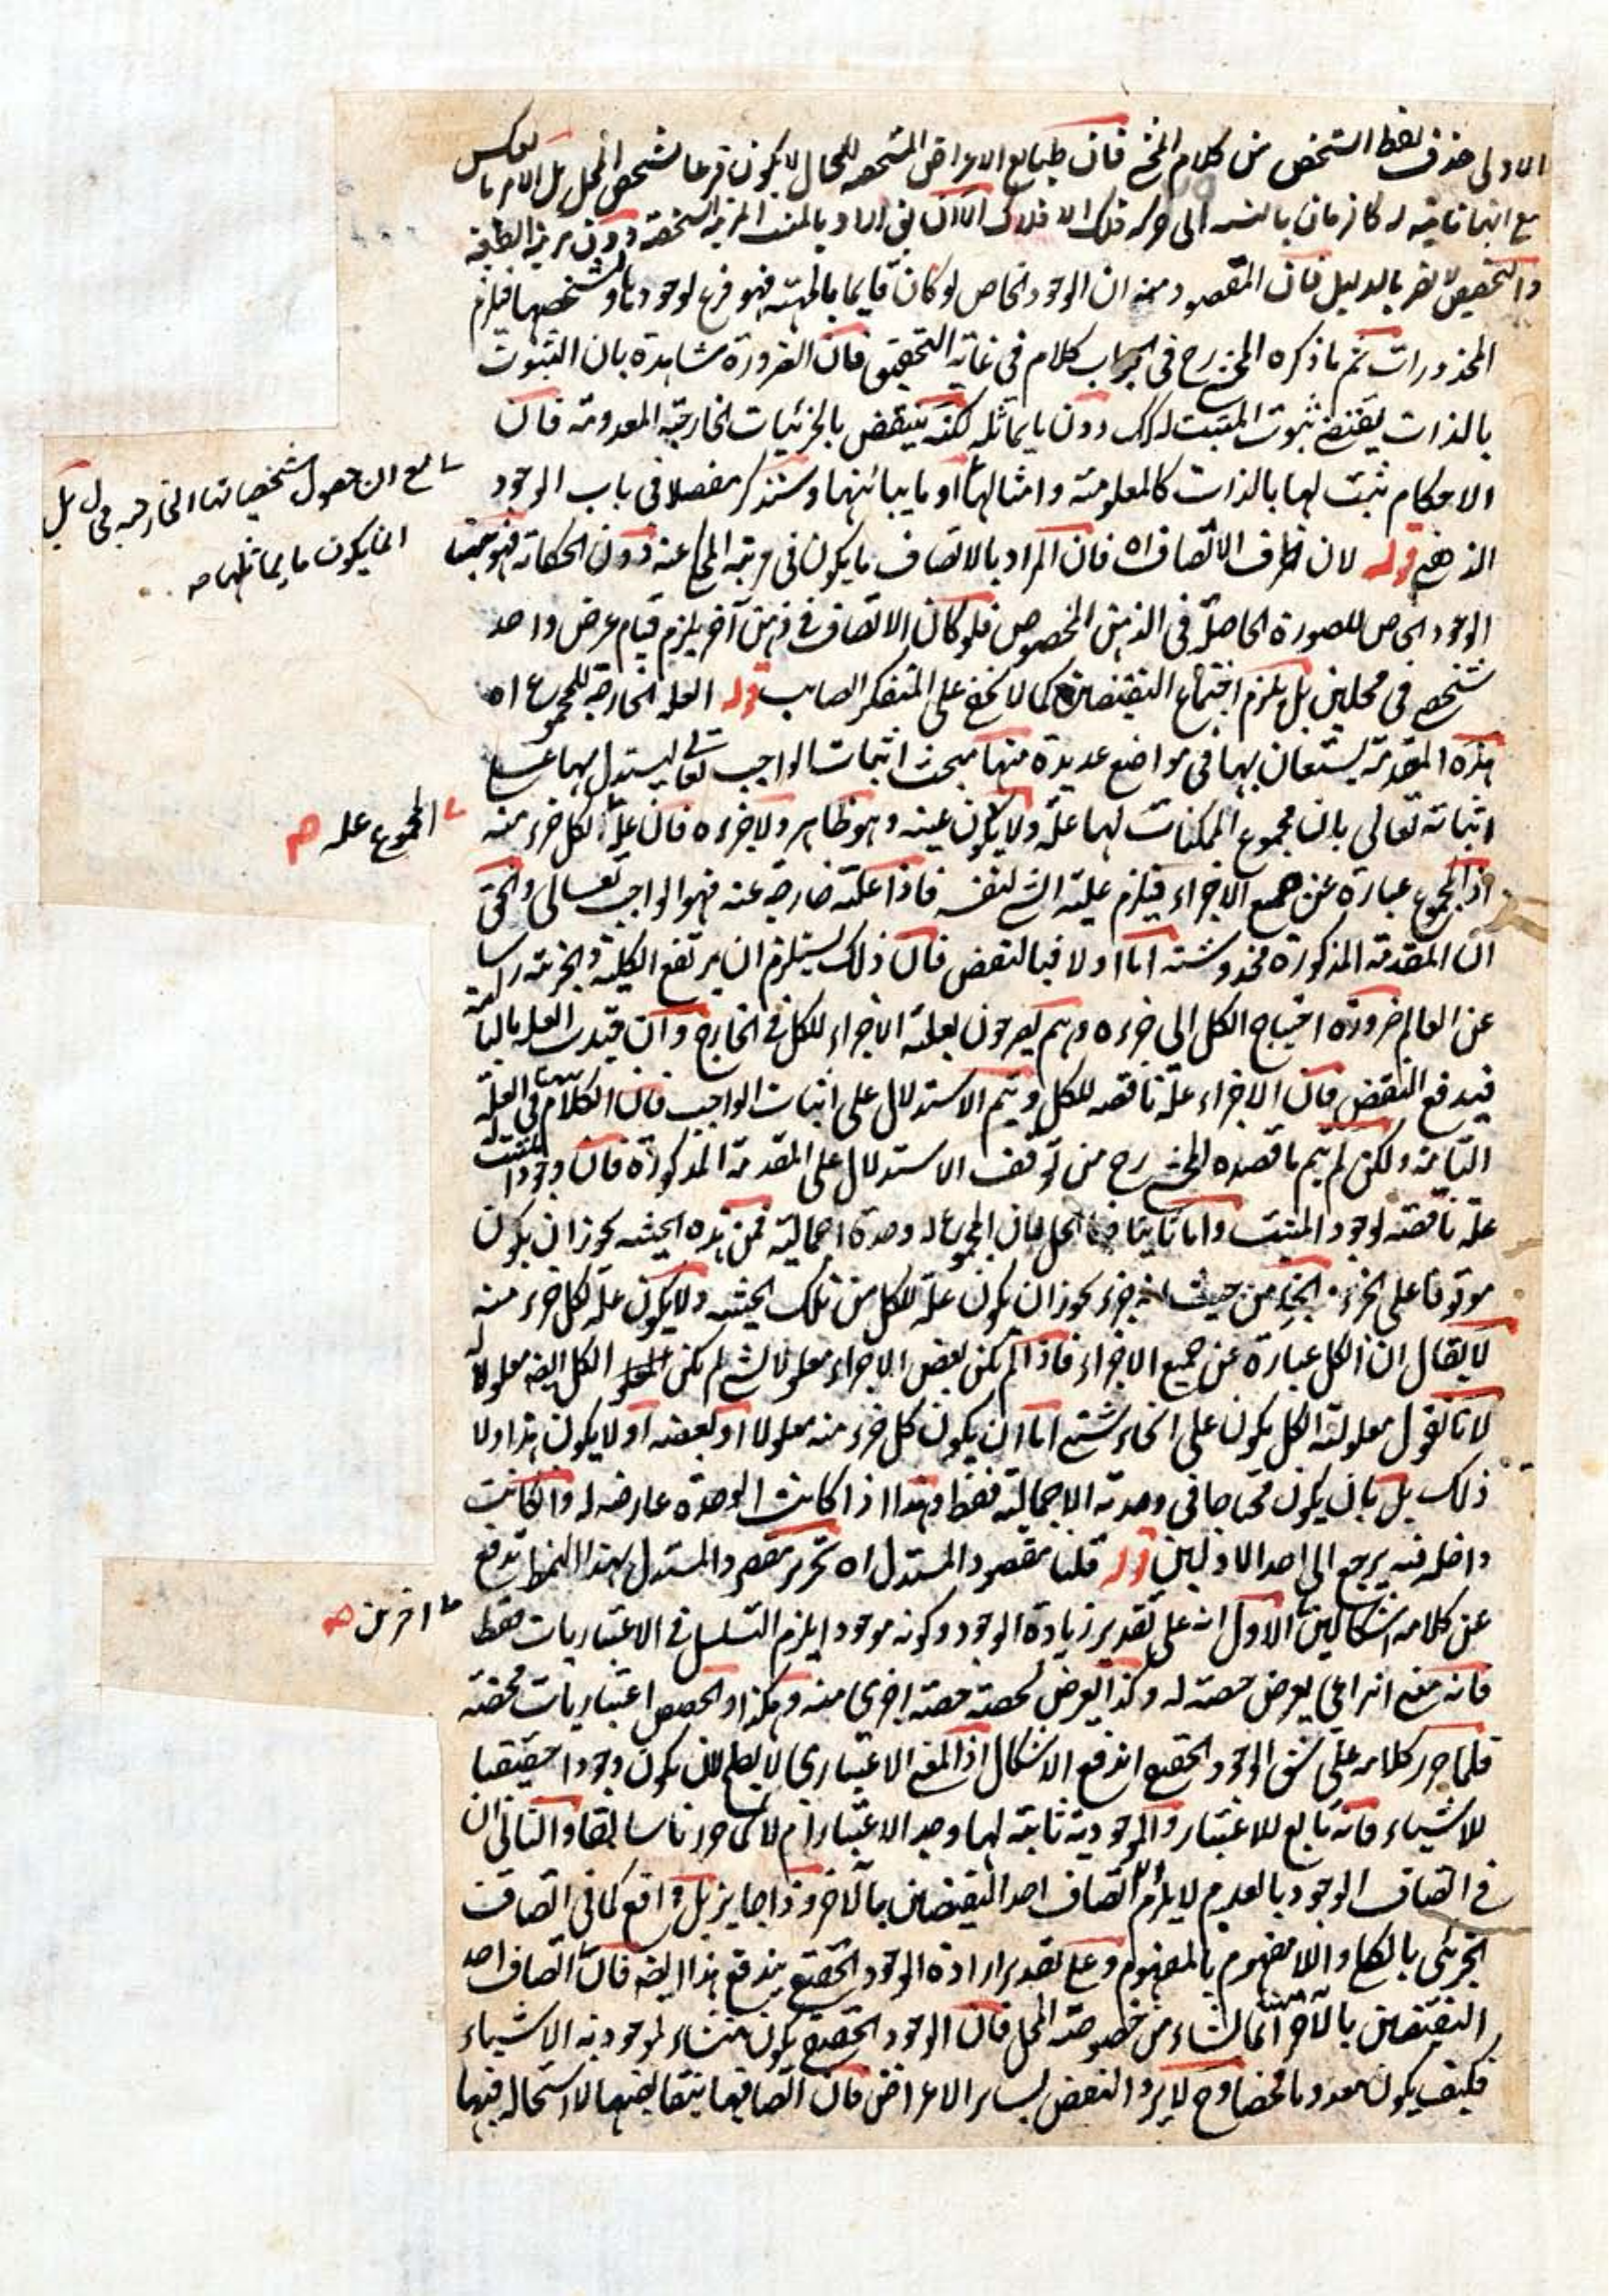 الاولى حذف لفظ التشخص من كلام المحشي فان طبايع الاعراض المشخصه للمحال لا يكون فرعا لتشخص المحل بل الامر بالعكس
مع انها تابعة له كالزمان بالنسبة الى حركة فلك الافلاك الا ان يق اراد بالمثبت المرتبة الشخصية دون مرتبة الطبيعة
والتخصيص لا يضر بالدليل فان المقصود منه ان الوجود الخاص لو كان قايما بالمهية فهو فرع لوجودها وتشخصها فيلزم
المحذورات ثم ما ذكره المحشي رح في الجواب كلام في غاية التحقيق فان الضرورة شاهدة بان الثبوت
بالذات يقتضي ثبوت المثبت له كك دون ما يماثله لكنه ينتقض بالجزئيات الخارجية المعدومة فان
الاحكام تثبت لها بالذات كالمعلومية وامثالها او ما يباينها وستذكر مفصلا في باب الوجود
الذهني قوله لان ظرف الاتصاف اه فان المراد بالاتصاف ما يكون في مرتبة المحكي عنه دون الحكاية فهو ههنا
الوجود الخاص للصورة الحاصلة في الذهن المخصوص فلو كان الاتصاف في ذهن آخر يلزم قيام عرض واحد
شخصي في محلين بل يلزم اجتماع النقيضين كما لا يخفى على المتفكر الصايب قوله العلة الخارجة للمجموع اه
هذه المقدمة يستعان بها في مواضع عديدة منها مبحث اثبات الواجب تعالى ليستدل بها على
اثباته تعالى بان مجموع الممكنات لها علة ولا يكون عينه وهو ظاهر ولا جزءه فان علة الكل جزء منه
اذ المجموع عبارة عن جميع الاجزاء فيلزم علية الشي لنفسه فاذا علته خارجة عنه فهو الواجب تعالى والحق
ان المقدمة المذكورة مخدوشة اما اولا فبالنقض فان ذلك يستلزم ان يرتفع الكلية والجزئية راسا
عن العالم ضرورة احتياج الكل الى جزءه وهم يصرحون بعلية الاجزاء للكل في الخارج وان قيدت العلة بالتامة
فيدفع النقض فان الاجزاء علة ناقصة للكل ويتم الاستدلال على اثبات الواجب فان الكلام ههنا في العلة
التامة ولكن لم يتم ما قصده المحشي رح من توقف الاستدلال على المقدمة المذكورة فان وجود المثبت له
علة ناقصة لوجود المثبت واما ثانيا فبالحل فان المجموع له وحدة اجمالية فمن هذه الحيثية يجوز ان يكون
موقوفا على الجزء فالجزء من حيث انه جزء يجوز ان يكون علة للكل من تلك الحيثية ولا يكون علة لكل جزء منه
لا يقال ان الكل عبارة عن جميع الاجزاء فاذا لم يكن بعض الاجزاء معلولا لشي لم يكن الكل ايضه معلولا له
لانا نقول معلولية الكل يكون على انحاء شتى اما ان يكون كل جزء منه معلولا او بعضه او لا يكون هذا ولا
ذلك بل بان يكون محتاجا في وحدته الاجمالية فقط وهذا اذا كانت الوحدة عارضة له وان كانت
داخلة فيه يرجع الى احد الاولين قوله قلنا مقصود المستدل اه تحرير مقصود المستدل بهذا النمط يدفع
عن كلامه اشكالين الاول انه على تقدير زيادة الوجود وكونه موجودا يلزم التسلسل في الاعتباريات فقط
فانه معنى انتزاعي يعرض حصته له وكذا يعرض لحصته حصة اخرى منه وهكذا والحصص اعتباريات محضة
فلما حرر كلامه على شق الوجود الحقيقي اندفع الاشكال اذ المعنى الاعتباري لا يصلح لان يكون وجودا حقيقيا
للاشياء فانه تابع للاعتبار والموجودية ثابتة لها وجد الاعتبار ام لا كما حررنا سابقا والثاني ان
في اتصاف الوجود بالعدم لا يلزم الا اتصاف احد النقيضين بالآخر وذا جايز بل واقع كما في اتصاف
الجزئي بالكلي واللامفهوم بالمفهوم وعلى تقدير ارادة الوجود الحقيقي يندفع هذا ايضه فان اتصاف احد
النقيضين بالآخر ههنا انما نشاء من خصوصية المحل فان الوجود الحقيقي يكون منشاء لموجودية الاشياء
فكيف يكون معدوما محضا وح لا يرد النقض بساير الاعراض فان اتصافها بنقايضها لا استحالة فيها
مع ان حصول تشخصاتها الخارجية محال بل
انما يكون ما يماثلها صه
المجموع علة صه
اخرين صه